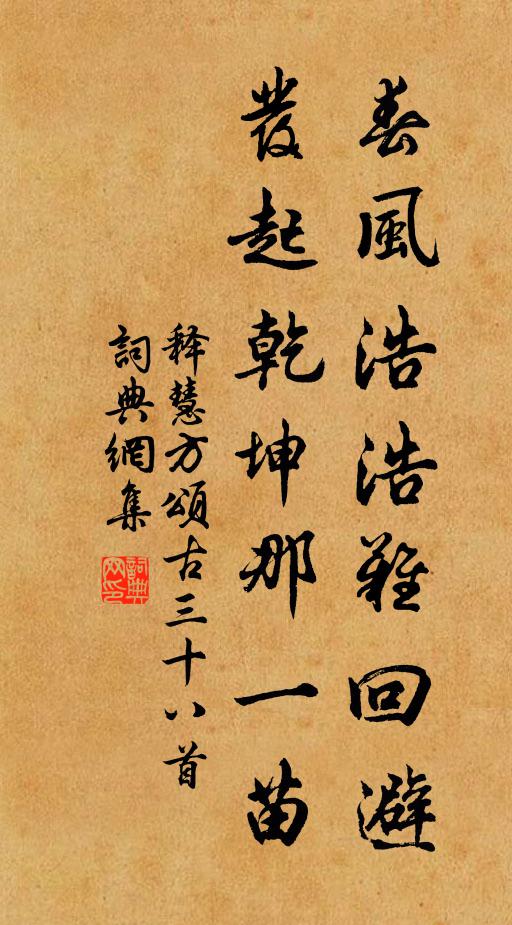 春風浩浩難回避
發起乾坤那一苗
释慧方頌古三十八首
詞典網集
詞典
网印